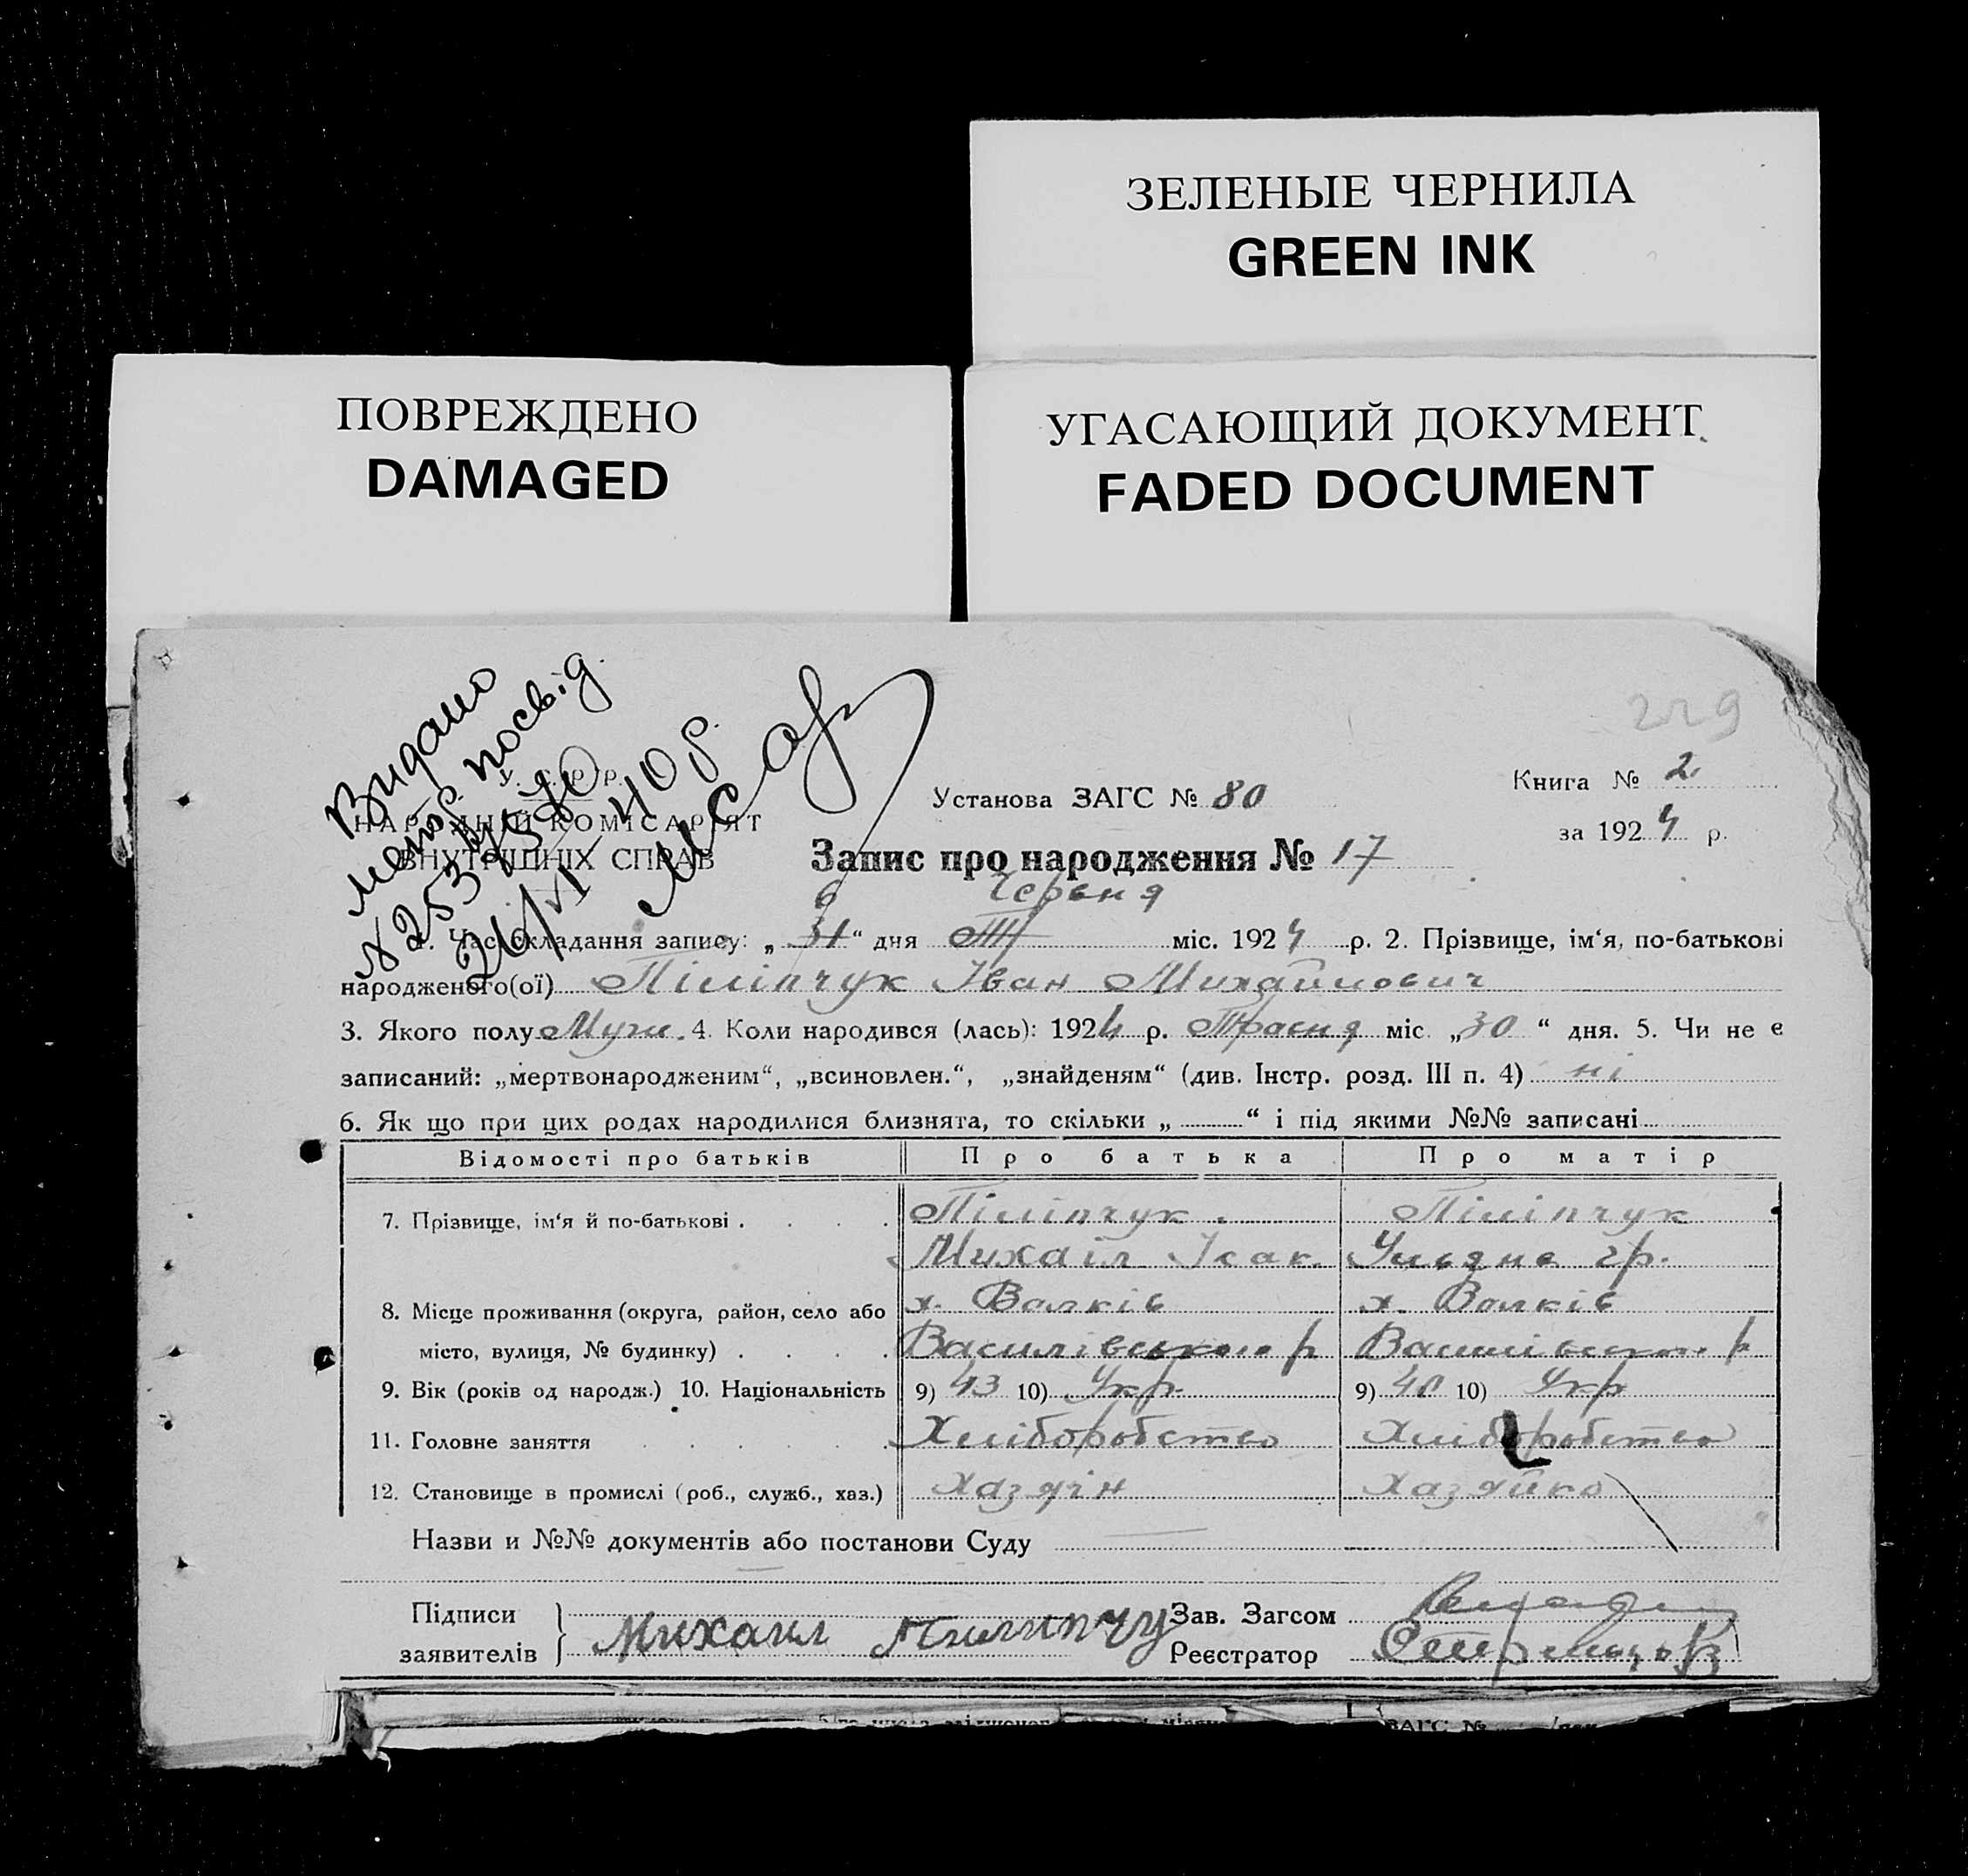 ЗЕЛЕНЫЕ ЧЕРНИЛА
GREEN INK
ПОВРЕЖДЕНО
DAMAGED
УГАСАЮЩИЙ ДОКУМЕНТ
FADED DOCUMENT
229
Видано
метр. посвід.
N 253
26/VI 40 р.
У. С. Р. Р.
НАРОДНІЙ КОМІСАРІЯТ
ВНУТРІШНІХ СПРАВ
Установа ЗАГС № 80
Книга № 2
за 1924 р.
Запис про народження № 17
6 Червня
1. Час складання запису: „ 31 “ дня міс. 1924 р. 2. Прізвище, ім‘я, по-батькові
народженого(ої) Піліпчук Іван Михайлович
3. Якого полу Муж. 4. Коли народився (лась): 1924 р. Траєня міс. „30“ дня. 5. Чи не є
записаний: „мертвонародженим“, „всиновлен.“, „знайденям“ (див. Інстр. розд. III п. 4) ні
6. Як що при цих родах народилися близнята, то скільки „ “ і під якими №№ записані
Відомості про батьків Про батька Про матір
7. Прізвище, ім‘я й по-батькові . . . . Піліпчук . Піліпчук
Михаіл Ісак. Уляна гр.
8. Місце проживання (округа, район, село або х. Валків х. Валків
місто, вулиця, № будинку) . . . . Василівського р Василівського р
9. Вік (років од народж.) 10. Національність 9) 43 10) Укр. 9) 40 10) Укр
11. Головне заняття . . . . . Хліборобство Хліборобство
12. Становище в промислі (роб., служб., хаз.) Хазяін Хазяйка
Назви и №№ документів або постанови Суду
Підписи
заявителів
Михаил Пилипчу
Зав. Загсом
Реєстратор
ЗАГС №